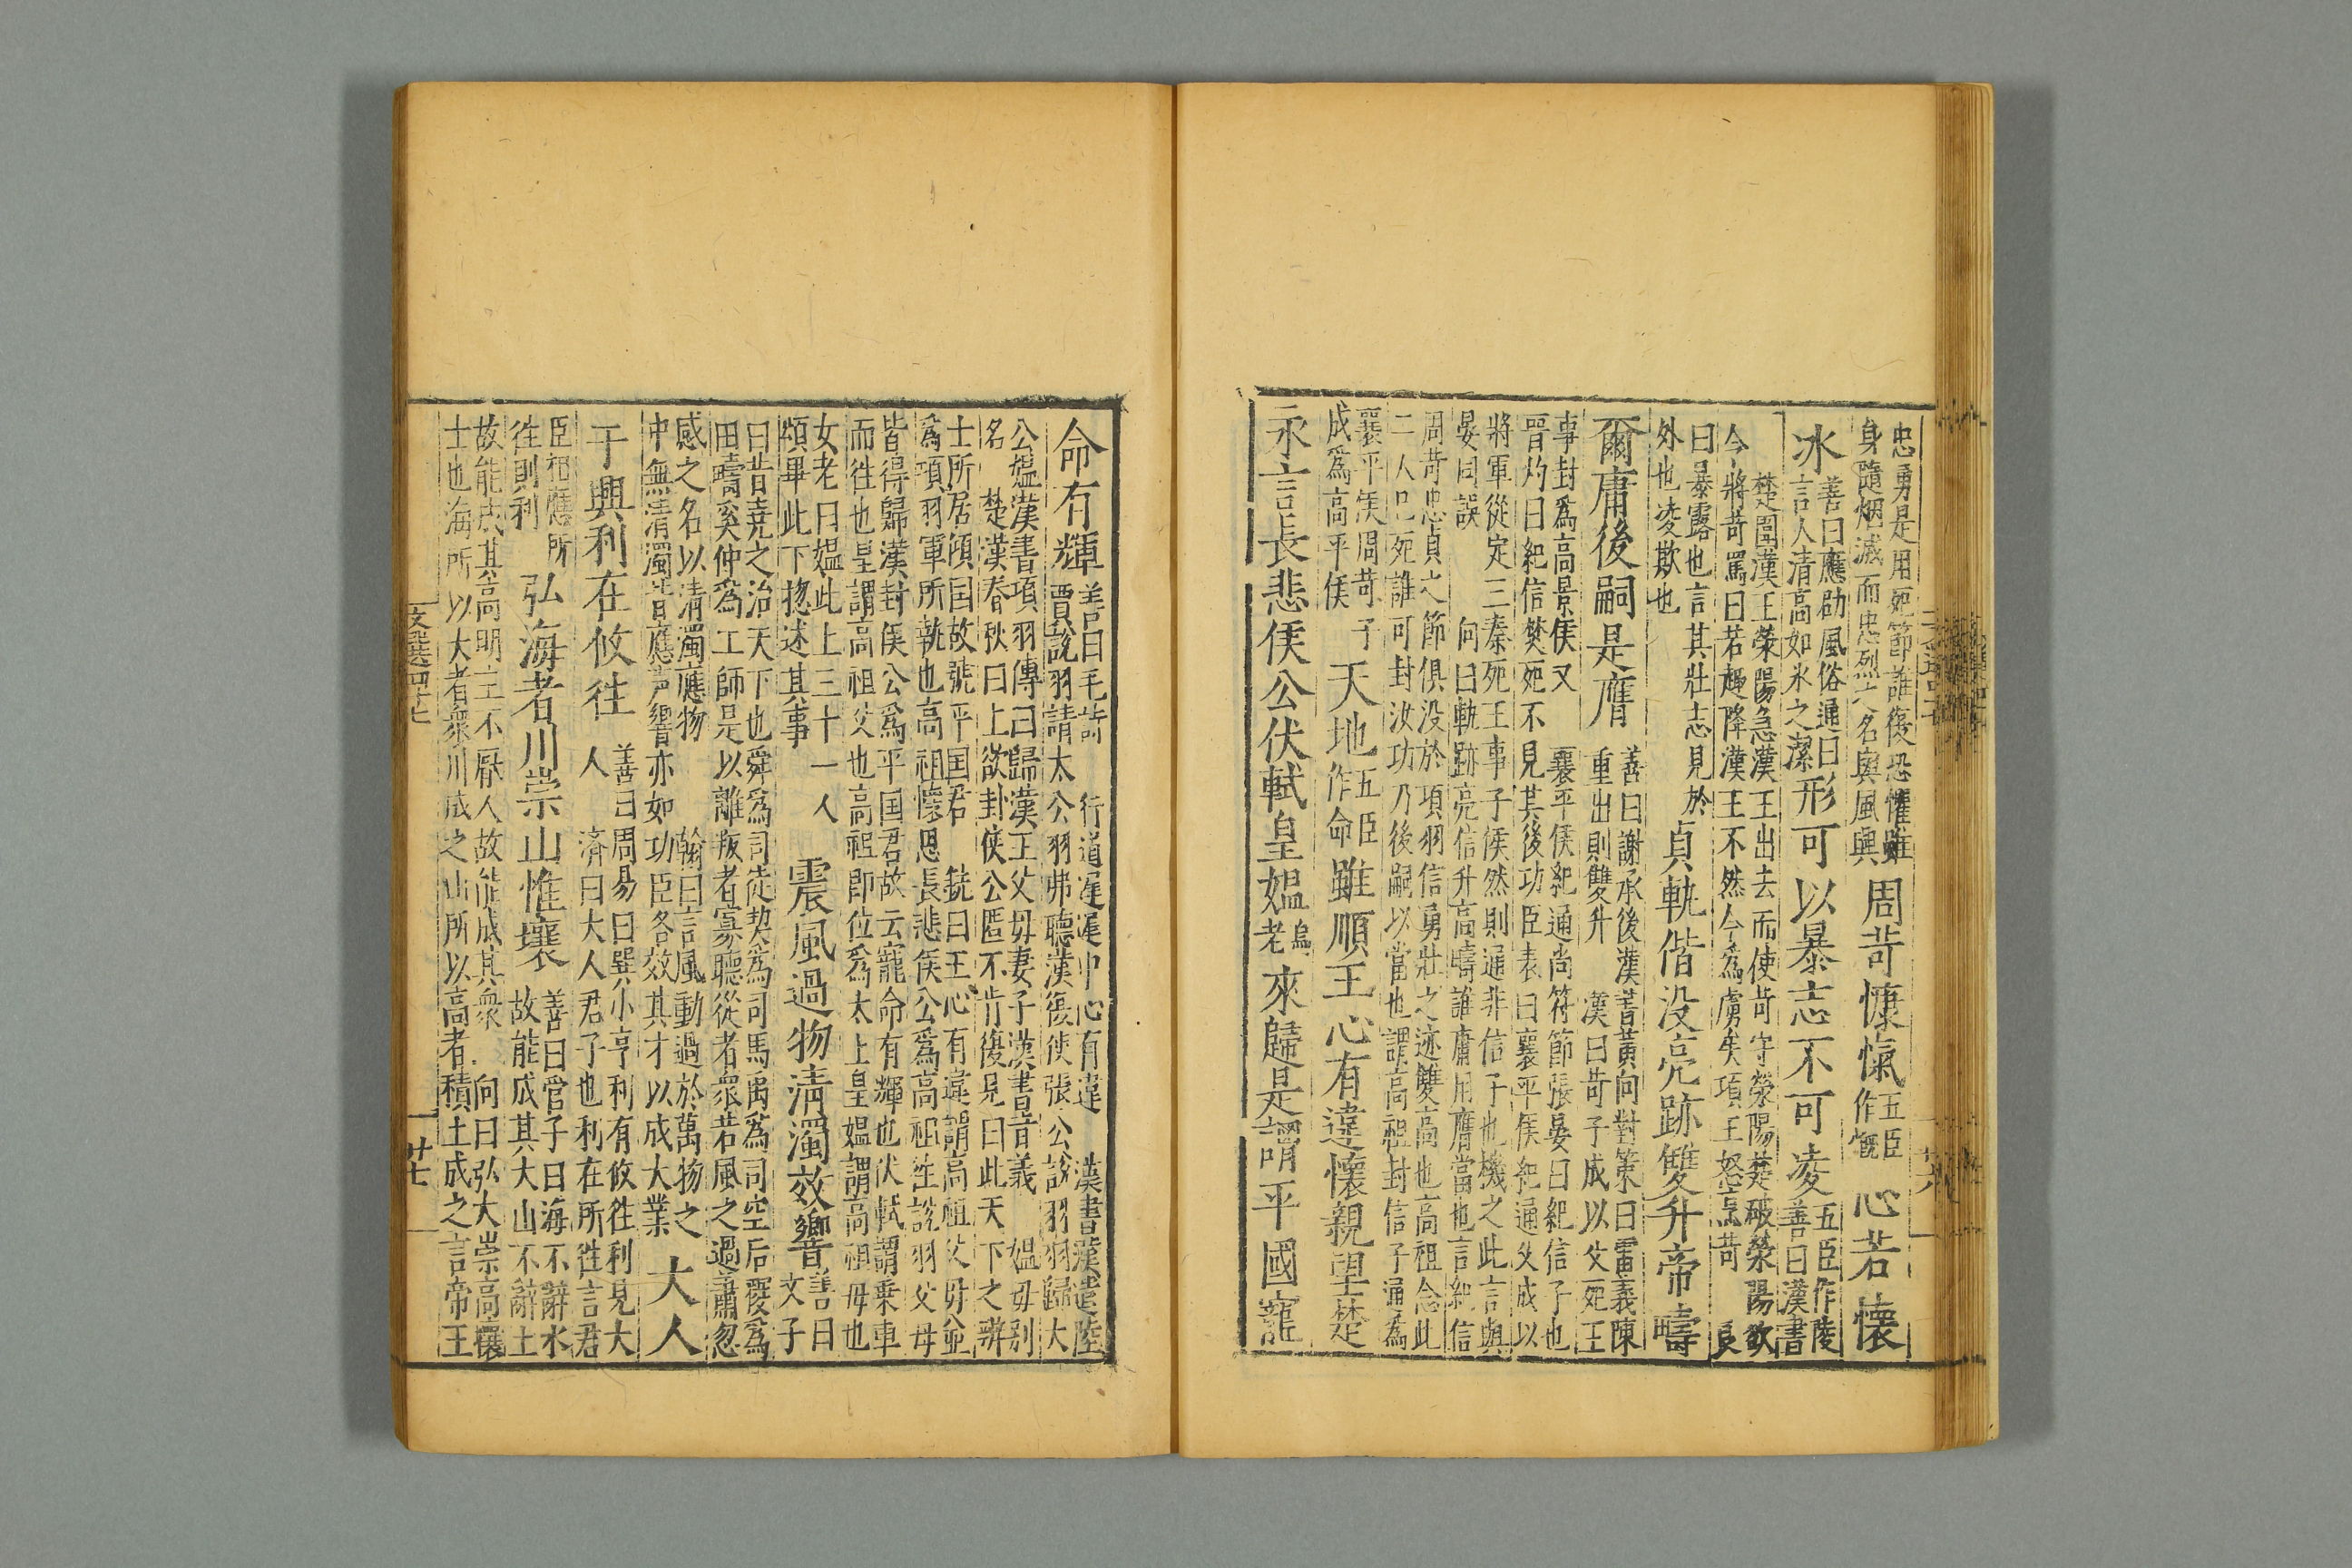 忠勇是用死節誰復恐懼雖
身隨烟滅而忠烈之名與風興
周苛慷愾
五臣
作慨
心若懷
冰
善曰應劭風俗通曰
言人清高如冰之潔
形可以暴志不可凌
五臣作陵
善曰漢書
楚圍漢王滎陽急漢王出去而使苛守滎陽楚破滎陽欲
令將苛罵曰若趣降漢王不然今為虜矣項王怒烹苛
良
曰暴露也言其壯志見於
外也凌欺也
貞軌偕没亮跡雙升帝疇
爾庸後嗣是膺
善曰謝承後漢書黃向對策曰雷義陳
重出則雙升
漢曰苛子成以父死王
事封為高景侯又
襄平侯紀通尚符節張晏曰紀信子也
晉灼曰紀信焚死不見其後功臣表曰襄平侯紀通父成以
將軍從定三秦死王事子侯然則通非信子也機之此言與
晏同誤
向曰軌跡亮信升高疇誰庸用膺當也言紀信
周苛忠貞之節俱没於項羽信勇壯之迹雙高也高祖念此
二人已死誰可封汝功乃後嗣以當也謂高祖封信子通為
襄平侯周苛子
成為高平侯
天地
五臣
作命
雖順王心有違懷親望楚
永言長悲侯公伏軾皇媼
烏
老
來歸是謂平國寵
命有輝
善曰毛詩
行道遲遲中心有違
漢書漢遣陸
賈說羽請太公羽弗聽漢復使張公說羽羽歸大
公媼漢書項羽傳曰歸漢王父母妻子漢書音義
媼母別
名
楚漢春秋曰上欲封侯公匿不肯復見曰此天下之辨
士所居傾国故號平国君
銑曰王心有違謂高祖父母並
為項羽軍所執也高祖懷思長悲侯公為高祖往說羽父母
皆得歸漢封侯公為平国君故云寵命有輝也伏軾謂乘車
而往也皇謂高祖父也高祖即位為太上皇媼謂高祖母也
女老曰媼此上三十一人
頌畢此下揔述其事
震風過物清濁效響
善曰
文子
曰昔堯之治天下也舜為司徒契為司馬禹為司空后稷為
田疇奚仲為工師是以離叛者寡聽從者衆若風之過蕭忽
感之名以清濁應物
翰曰言風動過於萬物之
中無清濁皆應聲響亦如功臣各效其才以成大業
大人
于興利在攸往
善曰周易曰巽小亨利有攸往利見大
人
濟曰大人君子也利在所往言君
臣相應所
往則利
弘海者川崇山惟壤
善曰管子曰海不辭水
故能成其大山不辭土
故能成其高明主不厭人故能成其衆
向曰弘大崇高壤
士也海所以大者衆川成之山所以高者積土成之言帝王
文選四十七
廿七